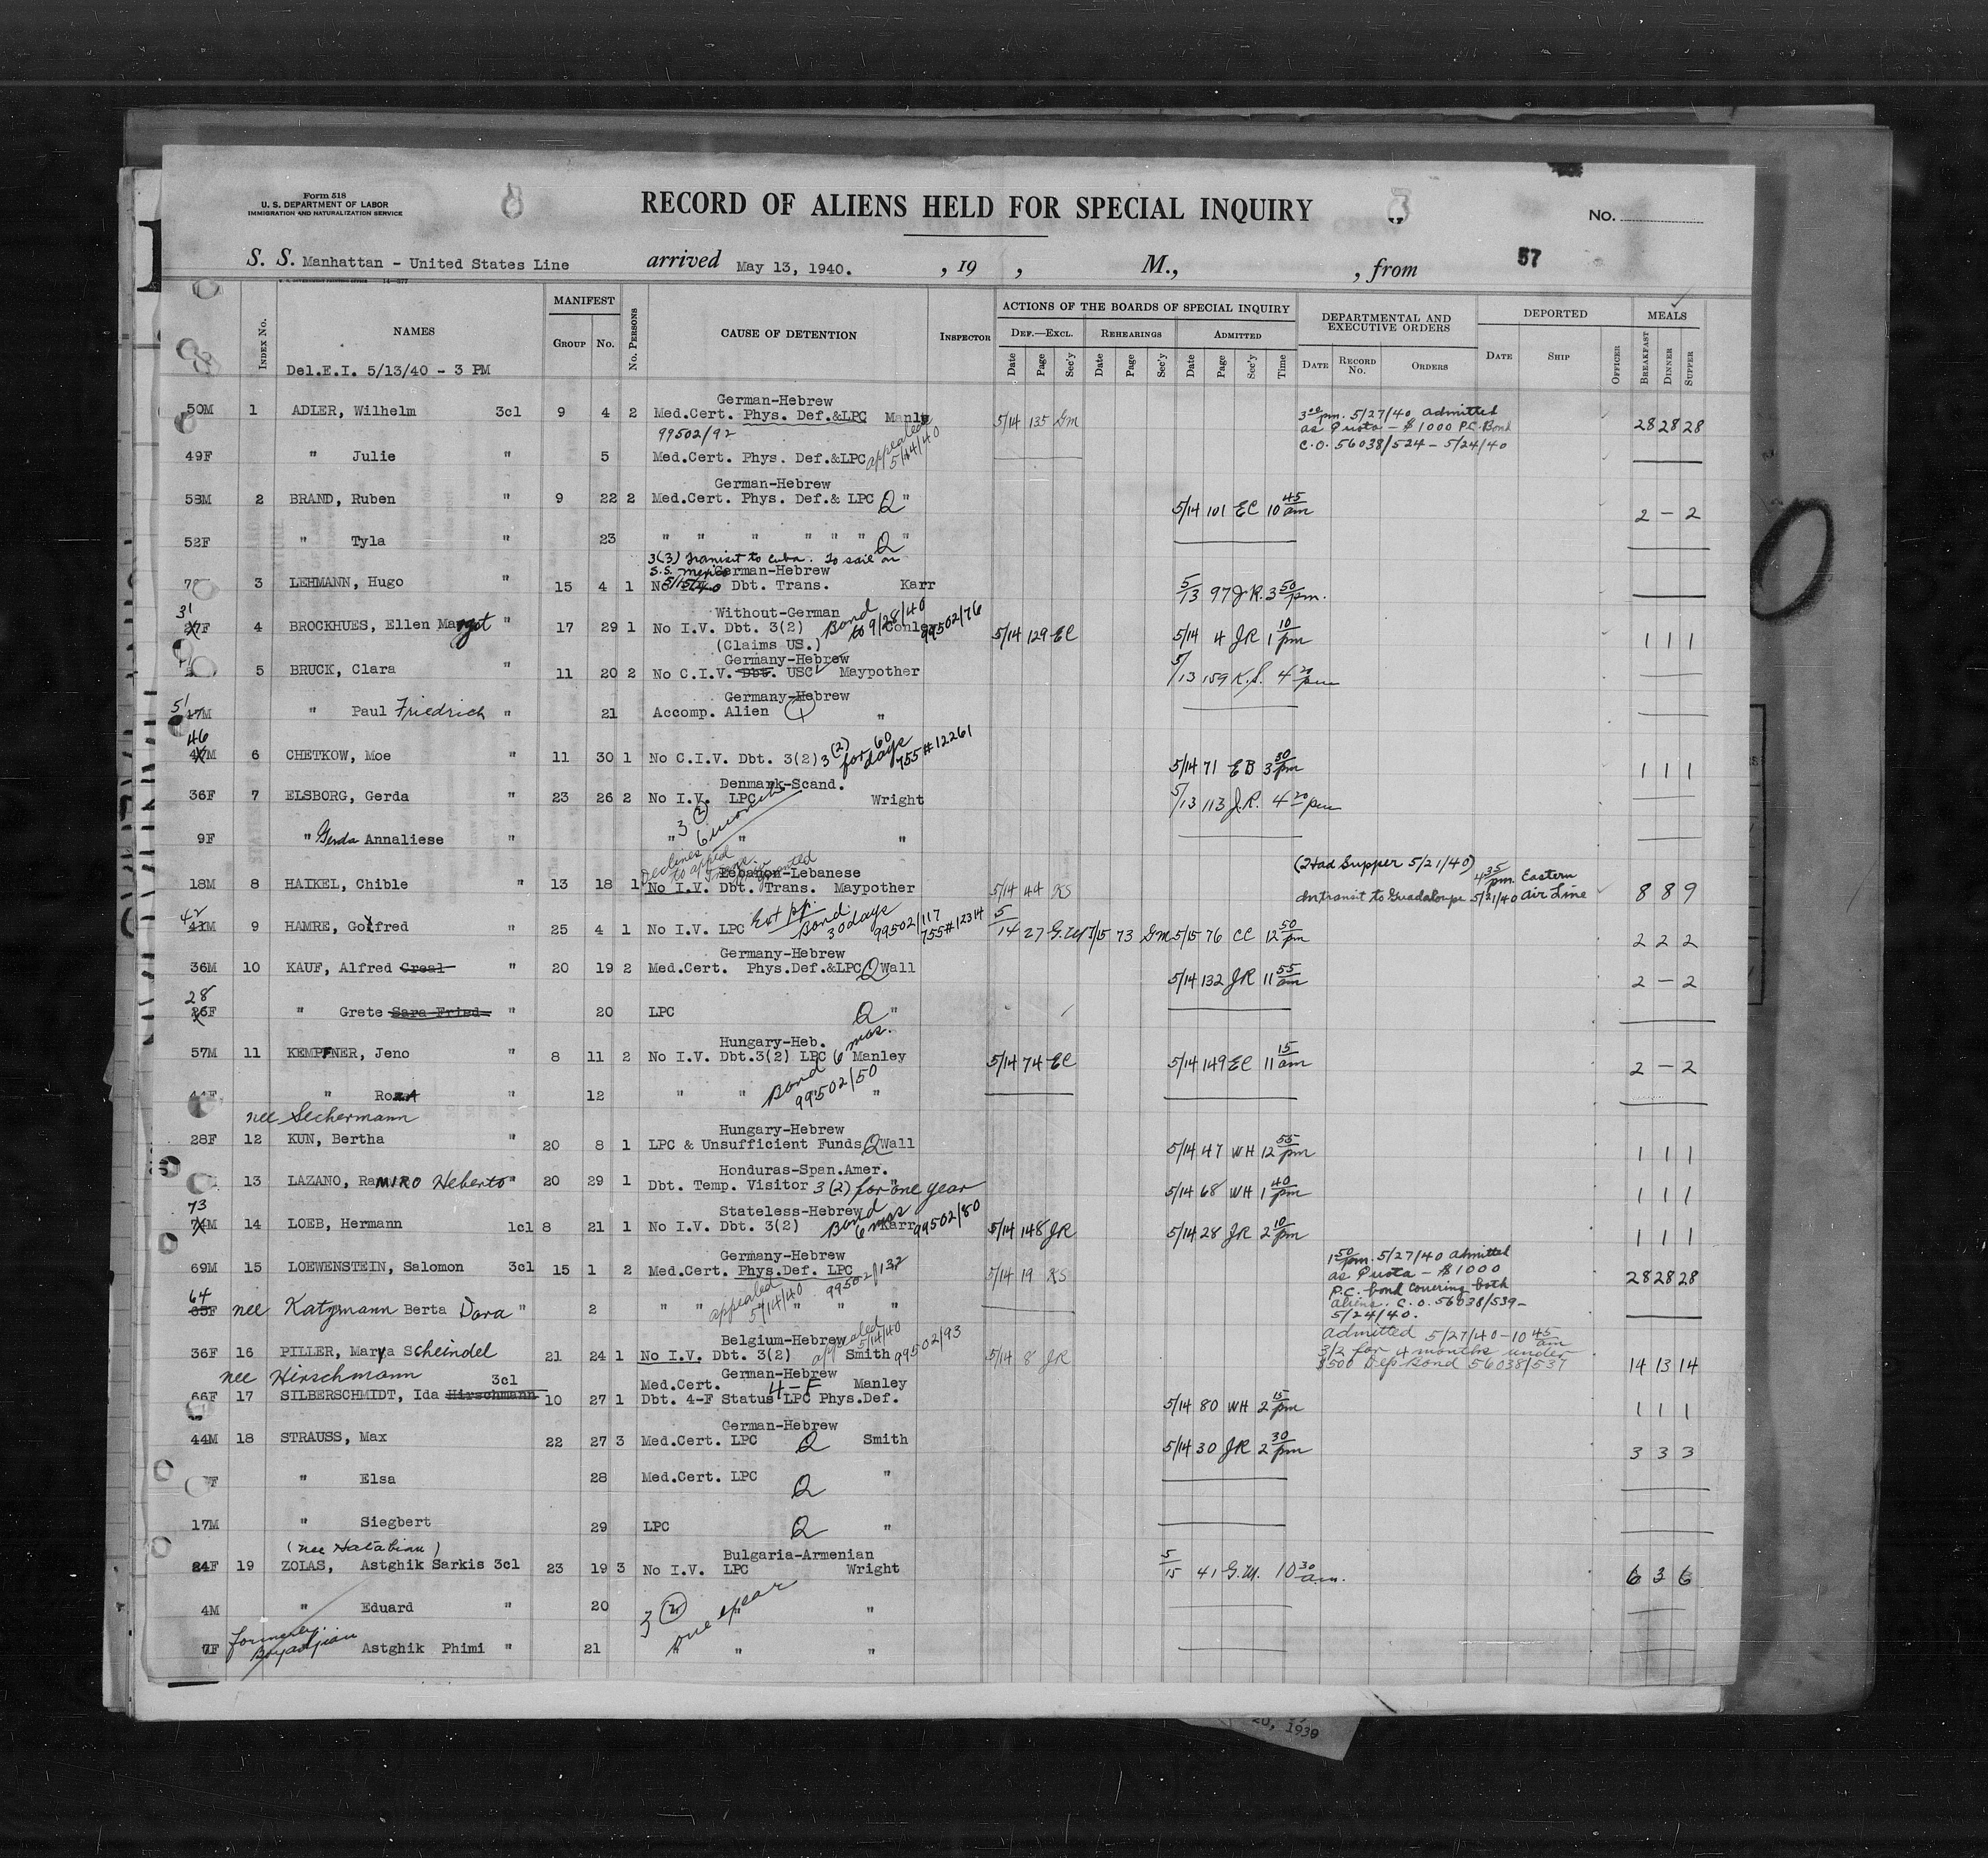 Form 518
U. S. DEPARTMENT OF LABOR
IMMIGRATION AND NATURALIZATION SERVICE
RECORD OF ALIENS HELD FOR SPECIAL INQUIRY
No.
S. S. Manhattan - United States Line arrived May 13, 1940. , 19 , M., , from 57
MANIFEST ACTIONS OF THE BOARDS OF SPECIAL INQUIRY DEPARTMENTAL AND EXECUTIVE ORDERS DEPORTED MEALS
INDEX No. NAMES GROUP No. No. PERSONS CAUSE OF DETENTION INSPECTOR DEF.—EXCL. REHEARINGS ADMITTED
Date Page Sec'y Date Page Sec'y Date Page Sec'y Time DATE RECORD No. ORDERS DATE SHIP OFFICER BREAKFAST DINNER SUPPER
Del.E.I. 5/13/40 - 3 PM
German-Hebrew
50M 1 ADLER, Wilhelm 3cl 9 4 2 Med.Cert. Phys. Def.&LPC 5/14 135 GM 3 00 pm. 5/27/40 admitted 28 28 28
99502/92 appealed 5/14/40 as Quota - $1000 P.C. Bond
C.O. 56038/524 - 5/24/40
49F " Julie " 5 Med.Cert. Phys. Def.&LPC
German-Hebrew
58M 2 BRAND, Ruben " 9 22 2 Med.Cert. Phys. Def.& LPC Q " 5/14 101 EC 10 45 am 2 - 2
52F " Tyla " 23 " " " " " " Q "
3(3) Transit to Cuba. To sail on
S.S. Mexico German-Hebrew
3 LEHMANN, Hugo " 15 4 1 5/15/40 Dbt. Trans. Karr 5/13 97 JR. 3 50 pm.
Without-German
31 4 BROCKHUES, Ellen Margot " 17 29 1 No I.V. Dbt. 3(2) Bond to 9/28/40 99502/76 5/14 129 EC 5/14 4 JR 1 10 pm 1 1 1
(Claims US.)
Germany-Hebrew
5 BRUCK, Clara " 11 20 2 No C.I.V. Dbt. USC Maypother 5/13 159 K.S. 4 20 pm
Germany-Hebrew
51 47M " Paul Friedrich " 21 Accomp. Alien Q "
46 6 CHETKOW, Moe " 11 30 1 No C.I.V. Dbt. 3(2) 3(2) for 60 days 755#12261 5/14 71 EB 3 30 pm 1 1 1
Denmark-Scand.
36F 7 ELSBORG, Gerda " 23 26 2 No I.V. LPC Wright 5/13 113 J.R. 4 20 pm
3(2) 6 months
9F " Gerda Annaliese " " " "
Declines to appeal
Lebanon-Lebanese (Had Supper 5/21/40)
18M 8 HAIKEL, Chible " 13 18 1 No I.V. Dbt. Trans. Maypother 5/14 44 KS In transit to Guadaloupe 4 35 pm. 5/21/40 Eastern Air Line 8 8 9
42 41M 9 HAMRE, Gotfred " 25 4 1 No I.V. LPC Bond 30 days 99502/117 755#12314 5/14 27 5/15 73 GM 5/15 76 CC 12 50 pm 2 2 2
Germany-Hebrew
36M 10 KAUF, Alfred " 20 19 2 Med.Cert. Phys.Def.&LPC Q Wall 5/14 132 JR 11 55 am 2 - 2
28 26F " Grete Sara Fried " 20 LPC Q "
Hungary-Heb.
57M 11 KEMPFNER, Jeno " 8 11 2 No I.V. Dbt.3(2) LPC 6 mos. Manley 5/14 74 EC 5/14 149 EC 11 15 am 2 - 2
44F " " 12 " " Bond 99502/50 "
nee Sechermann
Hungary-Hebrew
28F 12 KUN, Bertha " 20 8 1 LPC & Unsufficient Funds Q Wall 5/14 47 WH 12 55 pm 1 1 1
Honduras-Span.Amer.
13 LAZANO, RaMIRO Heberto " 20 29 1 Dbt. Temp. Visitor 3(2) for one year 5/14 68 WH 1 40 pm 1 1 1
Stateless-Hebrew
73 14 LOEB, Hermann 1cl 8 21 1 No I.V. Dbt. 3(2) Bond 6 mos Karr 99502/80 5/14 148 JR 5/14 28 JR 2 10 pm 1 1 1
Germany-Hebrew
69M 15 LOEWENSTEIN, Salomon 3cl 15 1 2 Med.Cert. Phys.Def. LPC 99502/132 5/14 19 KS 1 50 pm. 5/27/40 admitted 28 28 28
as Quota - $1000
P.C. bond covering both
aliens. C.O. 56038/539 -
5/24/40.
64 65F nee Katzmann Berta Dora " 2 " " appealed 5/14/40 " " "
Belgium-Hebrew
36F 16 PILLER, Marya Scheindel 21 24 1 No I.V. Dbt. 3(2) appealed 5/14/40 Smith 99502/93 5/14 8 JR admitted 5/27/40 - 10 45 am 14 13 14
3/2 for 4 months under
$500 Dep Bond 56038/537
nee Hirschmann
German-Hebrew
66F 17 SILBERSCHMIDT, Ida Hirschmann 3cl 10 27 1 Med.Cert. 4-F Manley 5/14 80 WH 2 15 pm 1 1 1
Dbt. 4-F Status LPC Phys.Def.
German-Hebrew
44M 18 STRAUSS, Max 22 27 3 Med.Cert. LPC Q Smith 5/14 30 JR 2 30 pm 3 3 3
" Elsa 28 Med.Cert. LPC Q "
17M " Siegbert 29 LPC Q "
Bulgaria-Armenian
24F 19 ZOLAS, Astghik Sarkis 3cl 23 19 3 No I.V. LPC Wright 5/15 41 G.M. 10 30 am. 6 3 6
4M " Eduard " 20 3(2) one year " "
7F formerly Boyadjian Astghik Phimi " 21 " " "
20, 1939